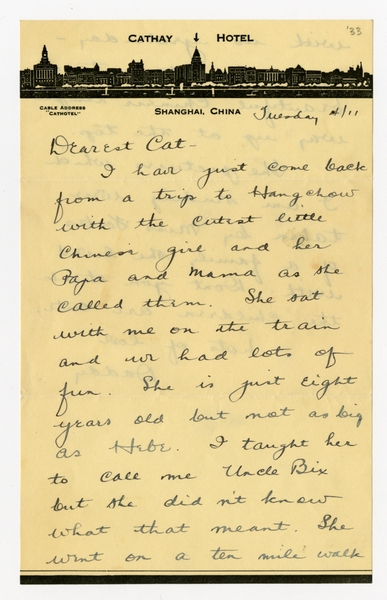 '33
CATHAY HOTEL
CABLE ADDRESS
"CATHOTEL"
SHANGHAI, CHINA
Tuesday 4/11
Dearest Cat-
I have just come back
from a trip to Hangchow
with the cutest little
Chinese girl and her
Papa and Mama as she
called them. She sat
with me on the train
and we had lots of
fun. She is just eight
years old but not as big
as Hebe. I taught her
to call me Uncle Bix
but she didn't know
what that meant. She
went on a ten mile walk